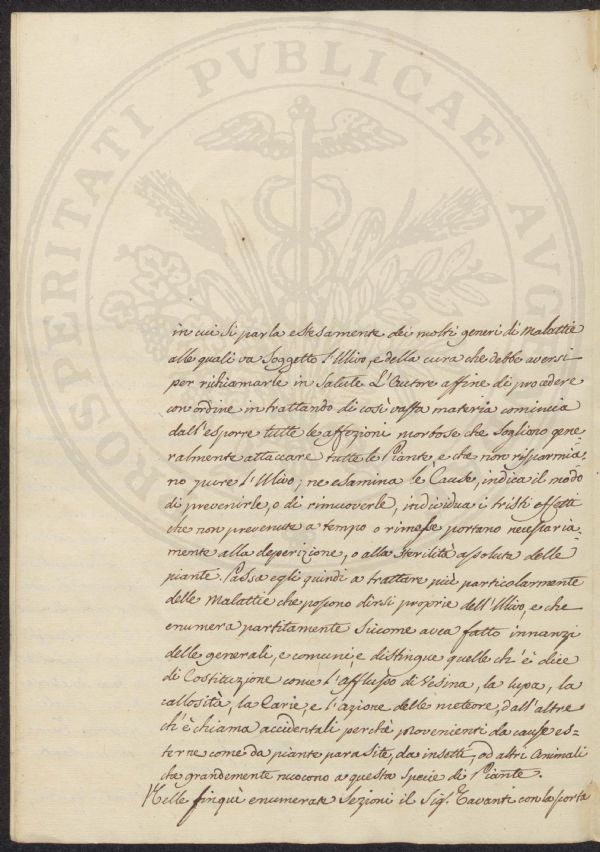 PROSPERITATI PVBLICAE AVG
in cui si parla estesamente dei molti generi di Malattie
alle quali va soggetto l'Ulivo, e della cura che debbe aversi
per richiamarle in salute L'Autore affine di procedere
con ordine in trattando di così vasta materia comincia
dall'esporre tutte le affezioni morbose che sogliono gene
ralmente attaccare tutte le Piante, e che non risparmia=
no pure l'Ulivo; ne esamina le Cause, indica il modo
di prevenirle, o di rimuoverle, individua i tristi effetti
che non prevenute a tempo o rimosse portano necessaria=
mente alla deperizione, o alla sterilità assoluta delle
piante. Passa egli quindi a trattare più particolarmente
delle Malattie che possono dirsi proprie dell'Ulivo, e che
enumera partitamente siccome avea fatto innanzi
delle generali, e comuni, e distingue quelle ch'è dice
di Costituzione come l'afflusso di Resina, la lupa, la
callosità, la Carie, e l'azione delle meteore, dall'altre
ch'è chiama accidentali perchè provenienti da cause es=
terne come da piante parasite, da insetti, od altri Animali
che grandemente nuocono a questa specie di Piante.
Nelle finquì enumerate Sezioni il Sig.r Tavanti con la scorta